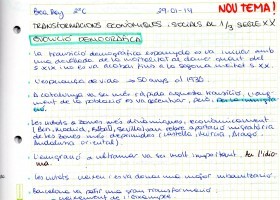 Bea Rey 2ºC 29-01-14 NOU TEMA!
TRANSFORMACIONS ECONÒMIQUES I SOCIALS AL 1/3 SEGLE XX
EVOLUCIÓ DEMOGRÀFICA
- La transició demogràfica espanyola es va iniciar amb
una davallada de la mortalitat al darrer quart del
s XIX, no es va notar fins a la segona meitat s XX.
- L'esperança de vida → 50 anys al 1930
- A Catalunya va ser més ràpida aquesta transició, l'aug-
ment de la població es va accentuar
- Les ciutats o zones més dinàmiques, econòmicament
(Bcn, Madrid, Bilbao, Sevilla) van rebre aportació migratòria
de les zones més deprimides (Castella, Múrcia, Aragó,
Andalusia oriental).
- L'emigració a ultramar va ser molt important, per l'idio-
ma.
- Les ciutats creixen i es va donar una major urbanització.
- Barcelona va patir una gran transformació
naixement de l'Eixample